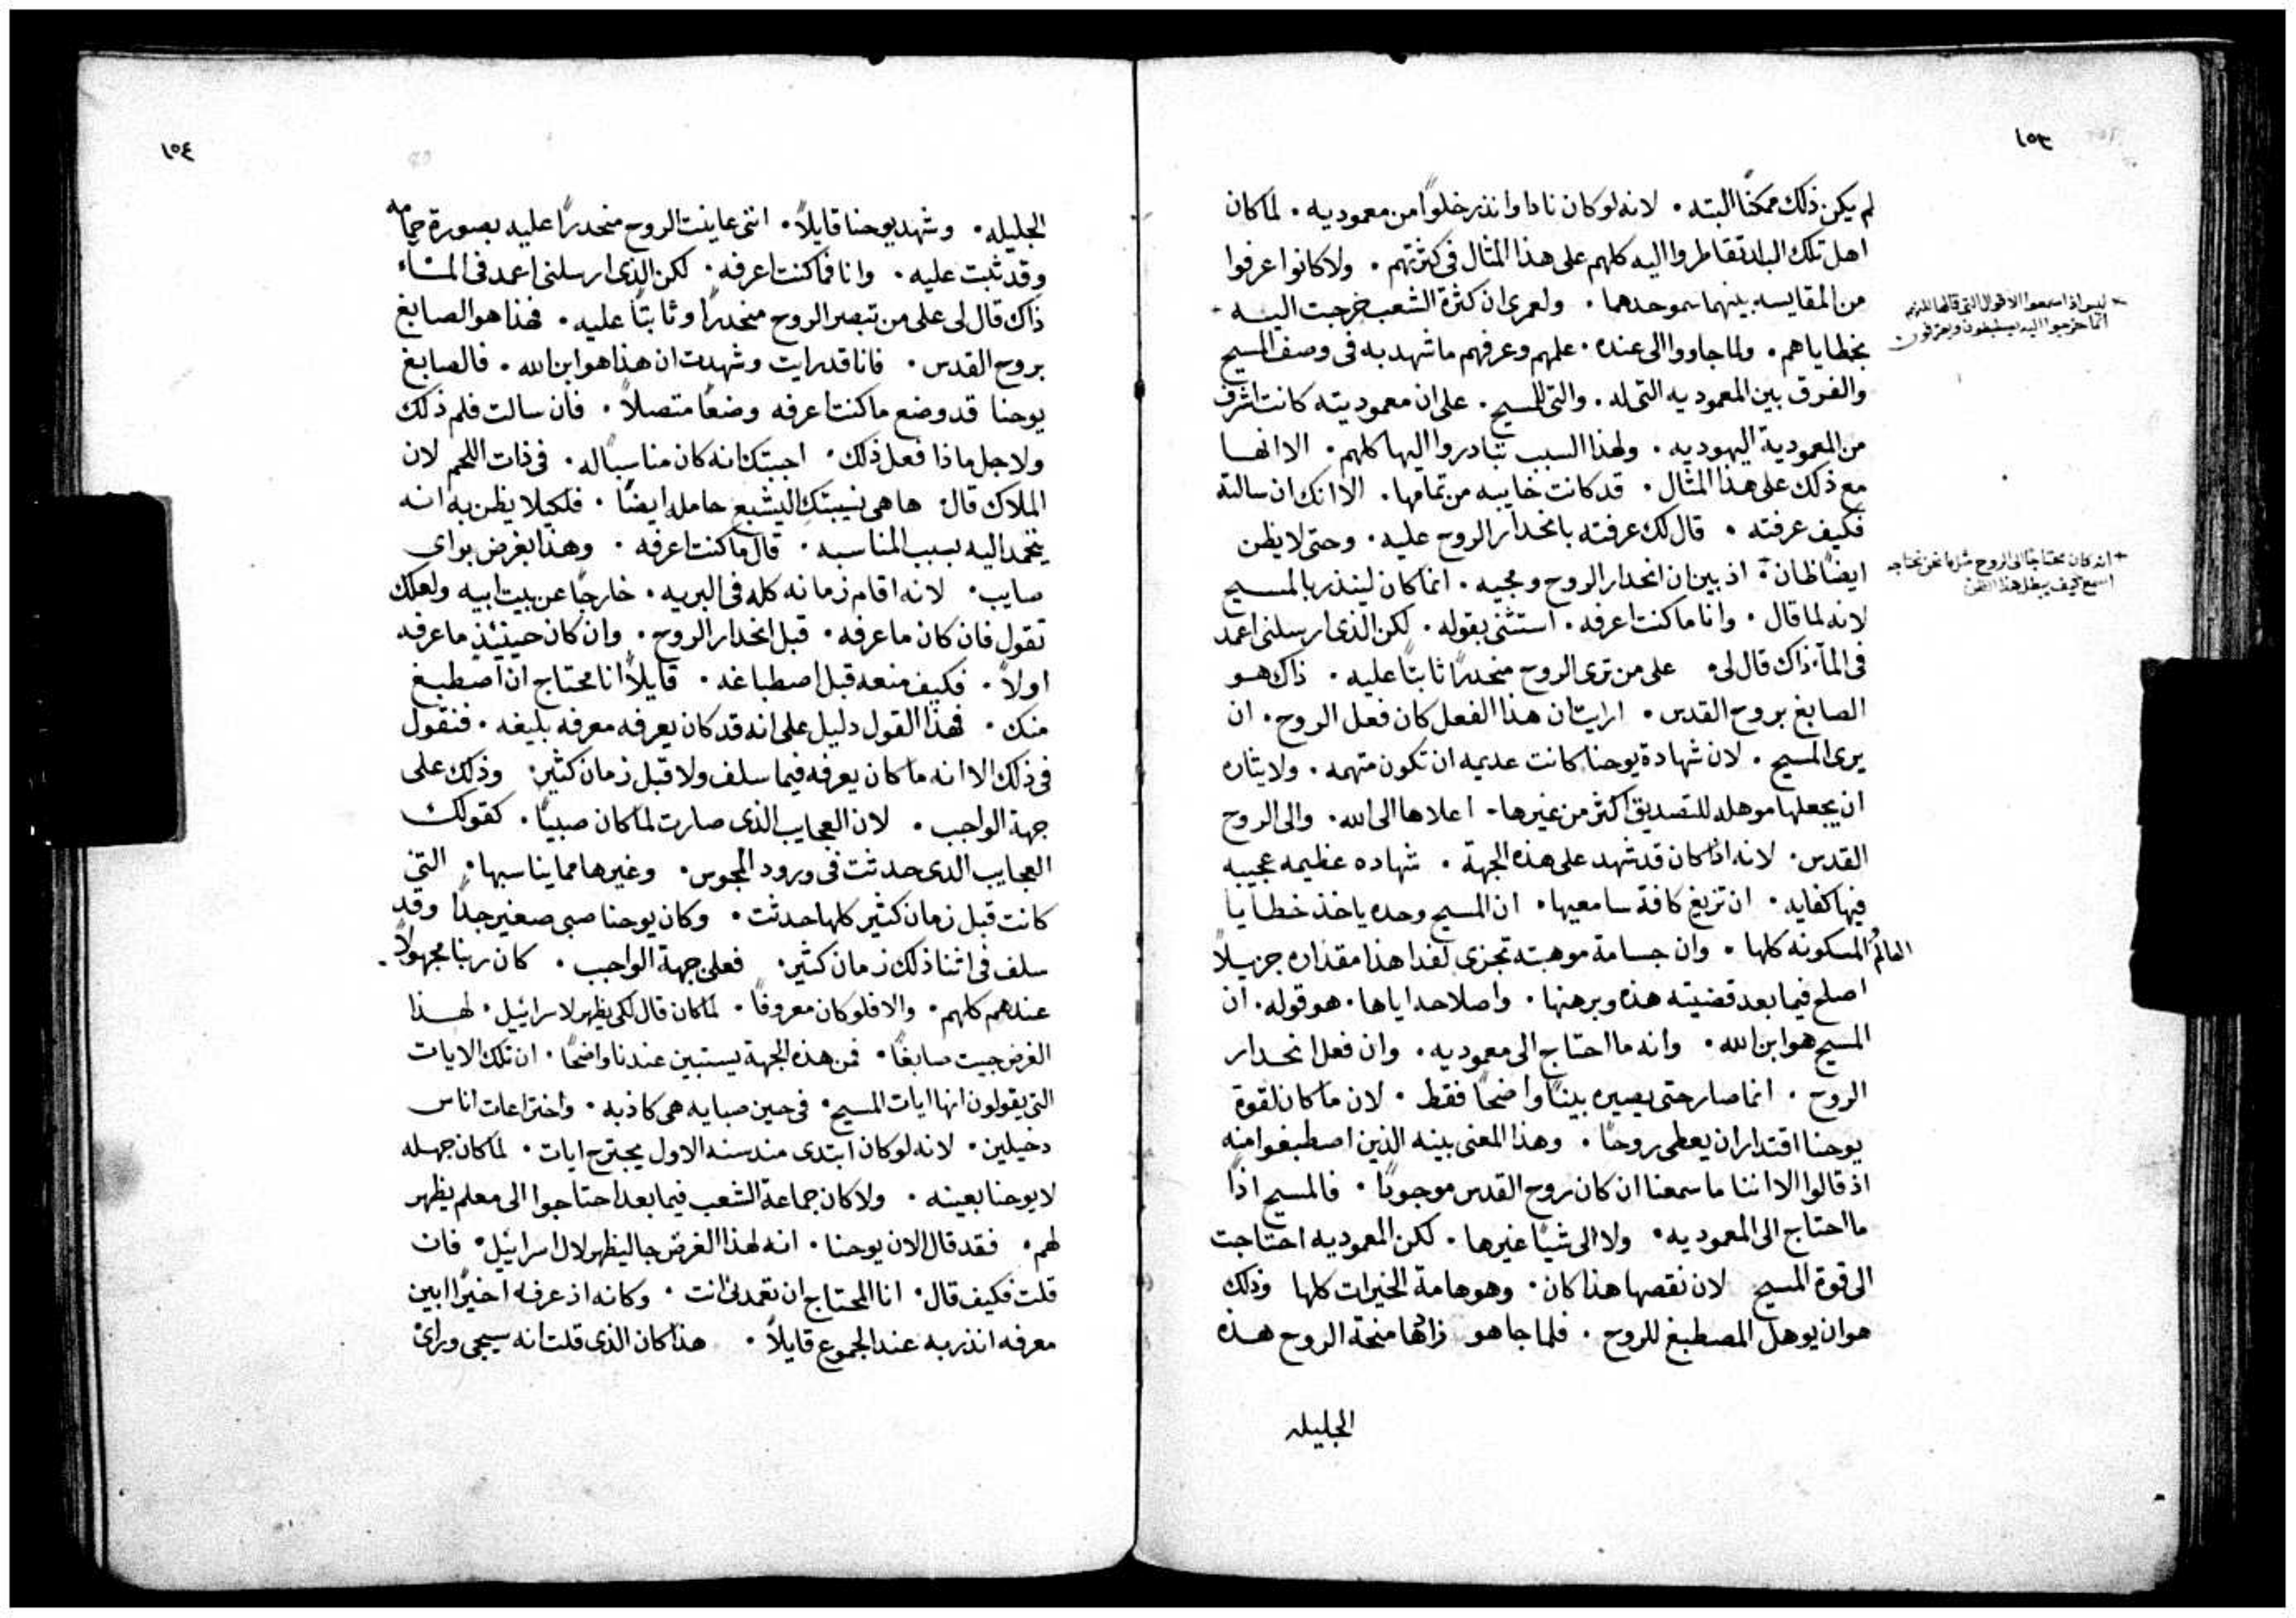 ١٥٣
لم يكن ذلك ممكنًا البته. لانه لو كان نادا وانذر خلوًا من معموديه. لما كان
اهل تلك البلد تقاطروا اليه كلهم على هذا المثال فى كثرتهم. ولا كانوا عرفوا
من المقايسه بينهما سمو احدهما. ولعمرى ان كثرة الشعب خرجت اليه
ليس اذا سمعوا الاقوال التى قالها لكنهم
انما خرجوا اليه ليصطبغون ويعترفون
بخطاياهم. ولما جاووا الى عنده. علمهم وعرفهم ما شهد به فى وصف المسيح
والفرق بين المعموديه التى له. والتى للمسيح. على ان معموديته كانت اشرف
من المعمودية اليهوديه. ولهذا السبب تبادروا اليها كلهم. الا انها
مع ذلك على هذا المثال. قد كانت خايبه من تمامها. الا انك ان سالته
فكيف عرفته. قال لك عرفته بانحدار الروح عليه. وحتى لا يظن
ايضًا ظان اذ بين ان انحدار الروح ومجيه. انما كان لينذر بالمسيح
انه كان محتاجًا الى الروح مثل ما نحن نحتاجه
اسمع كيف يبطل هذا الظن
لانه لما قال. وانا ما كنت اعرفه. استثنى بقوله. لكن الذى ارسلنى اعمد
فى المآء ذاك قال لى. على من ترى الروح منحدرًا ثابتًا عليه. ذاك هو
الصابغ بروح القدس. ارايت ان هذا الفعل كان فعل الروح. ان
يرى المسيح. لان شهادة يوحنا كانت عديمه ان تكون متهمه. ولايثاره
ان يجعلها موهله للتصديق اكثر من غيرها. اعلاها الى الله. والى الروح
القدس. لانه اذا كان قد شهد على هذه الجهة. شهاده عظيمه عجيبه
فيها كفايه. ان تزيغ كافة سامعيها. ان المسيح وحده ياخذ خطايا
العالم المسكونه كلها. وان جسامة موهبته تجزى لفدا هذا مقداره جزيلاً
اصلح فيما بعد قضيته هذه وبرهنها. واصلاحه اياها. هو قوله. ان
المسيح هو ابن الله. وانه ما احتاج الى معموديه. وان فعل انحدار
الروح. انما صار حتى يصيره بينًا واضحًا فقط. لان ما كان لقوة
يوحنا اقتدار ان يعطى روحًا. وهذا المعنى بينه الذين اصطبغوا منه
اذ قالوا الا اننا ما سمعنا ان كان روح القدس موجودًا. فالمسيح اذًا
ما احتاج الى المعموديه. ولا الى شيًا غيرها. لكن المعموديه احتاجت
الى قوة المسيح لان نقصها هذا كان. وهو هامة الخيرات كلها وذلك
هو ان يوهل المصطبغ للروح. فلما جا هو زادها منحة الروح هذه
الجليله
١٥٤
الجليله. وشهد يوحنا قايلاً. اننى عاينت الروح منحدرًا عليه بصورة حمامه
وقد ثبت عليه. وانا فما كنت اعرفه. لكن الذى ارسلنى اعمد فى المآء
ذاك قال لى على من تبصر الروح منحدرًا وثابتًا عليه. فهذا هو الصابغ
بروح القدس. فانا قد رايت وشهدت ان هذا هو ابن الله. فالصابغ
يوحنا قد وضع ما كنت اعرفه وضعًا متصلاً. فان سالت فلم ذلك
ولاجل ماذا فعل ذلك. اجبتك انه كان مناسبًا له. فى ذات اللحم لان
الملاك قال: ها هى نسيبتك اليشبع حامله ايضًا. فلكيلا يظن به انه
يتحمد اليه بسبب المناسبه. قال ما كنت اعرفه. وهذا بغرض بواى
صايب. لانه اقام زمانه كله فى البريه. خارجًا عن بيت ابيه ولعلك
تقول فان كان ما عرفه. قبل انحدار الروح. وان كان حينيذٍ ما عرفه
اولاً. فكيف منعه قبل اصطباغه. قايلاً انا محتاج ان اصطبغ
منك. فهذا القول دليل على انه قد كان يعرفه معرفه بليغه. فنقول
فى ذلك الا انه ما كان يعرفه فيما سلف ولا قبل زمان كثير: وذلك على
جهة الواجب. لان العجايب الذى صارت لما كان صبيًا. كقولك
العجايب الذى حدثت فى ورود المجوس. وغيرها مما يناسبها. التى
كانت قبل زمان كثير كلها حدثت. وكان يوحنا صبى صغير جدًا وقد
سلف فى اثنا ذلك زمان كثير. فعلى جهة الواجب. كان ربنا مجهولاً
عندهم كلهم. والا فلو كان معروفًا. لما كان قال لكى يظهر لاسراييل. لهذا
الغرض جيت صابغًا. فمن هذه الجهة يستبين عندنا واضحًا. ان تلك الايات
التى يقولون انها ايات المسيح. فى حين صبايه هى كاذبه. واختراعات اناس
دخيلين. لانه لو كان ابتدى منذ سنه الاول يجترح ايات. لما كان جهله
لا يوحنا بعينه. ولا كان جماعة الشعب فيما بعد احتاجوا الى معلم يظهر
لهم. فقد قال الان يوحنا. انه لهذا الغرض جا ليظهر لال اسراييل. فان
قلت فكيف قال. انا المحتاج ان تعمدنى انت. وكانه اذ عرفه اخيرًا ابين
معرفه انذر به عند الجموع قايلاً. هذا كان الذى قلت انه سيجى وراى